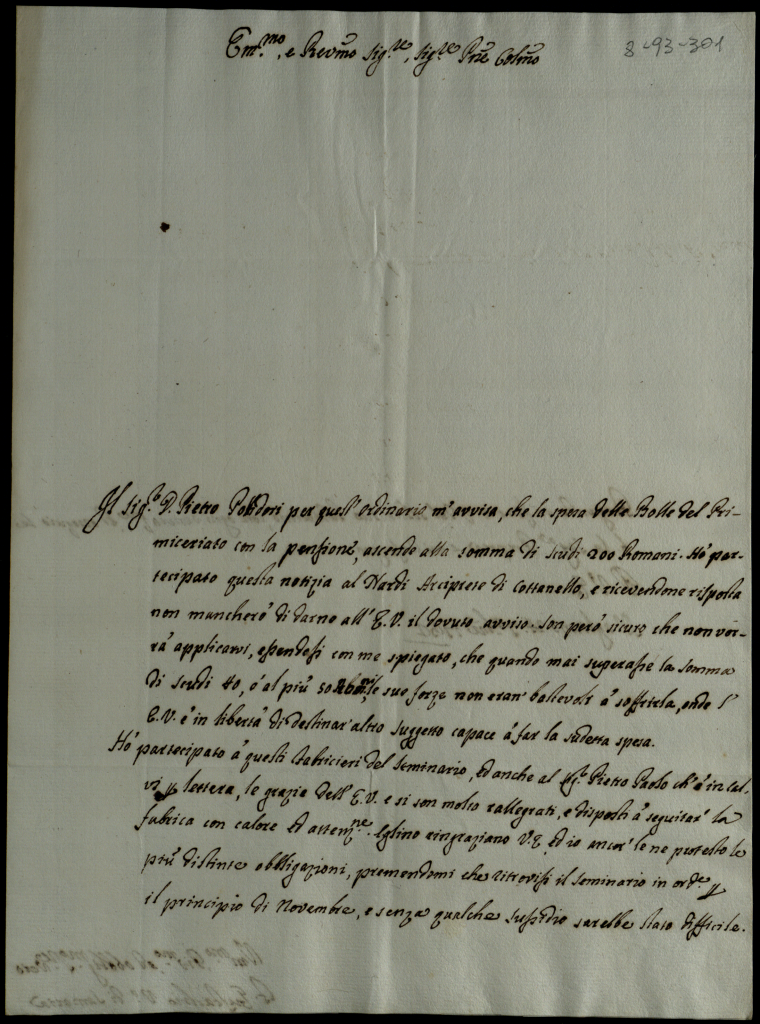 Em.mo, e Revmo Sig.re, Sig.re Pne Colmo
8-93-301
Il Sig.r D. Pietro Polidori per quest'Ordinario m'avvisa, che la spesa delle Bolle del Pri-
miceriato con la pensione, ascende alla somma di scudi 200 Romani. Hò par-
tecipato questa notizia al Nardi Arciprete di Cottanello, e ricevendone risposta
non mancherò di darne all'E.V. il dovuto avviso. Son però sicuro che non vor-
rà applicarvi, essendosi con me spiegato, che quando mai superasse la somma
di scudi 40, ò al più 50 le sue forze non eran' bastevoli à soffrirla, onde l'
E.V. è in libertà di destinar'altro suggetto capace à far la sudetta spesa.
Hò partecipato à questi Fabricieri del Seminario, ed anche al Pietro Paolo ch'è in Cal-
vi p lettera, le grazie dell'E.V. e si son molto rallegrati, e disposti à seguitar' la
fabrica con calore ed attenz.ne. Eglino ringraziano V.E. ed io ancor' le ne protesto le
più distinte obbligazioni, premendomi che ritrovisi il seminario in ord.e p
il principio di Novembre, e senza qualche sussidio sarebbe stato difficile.